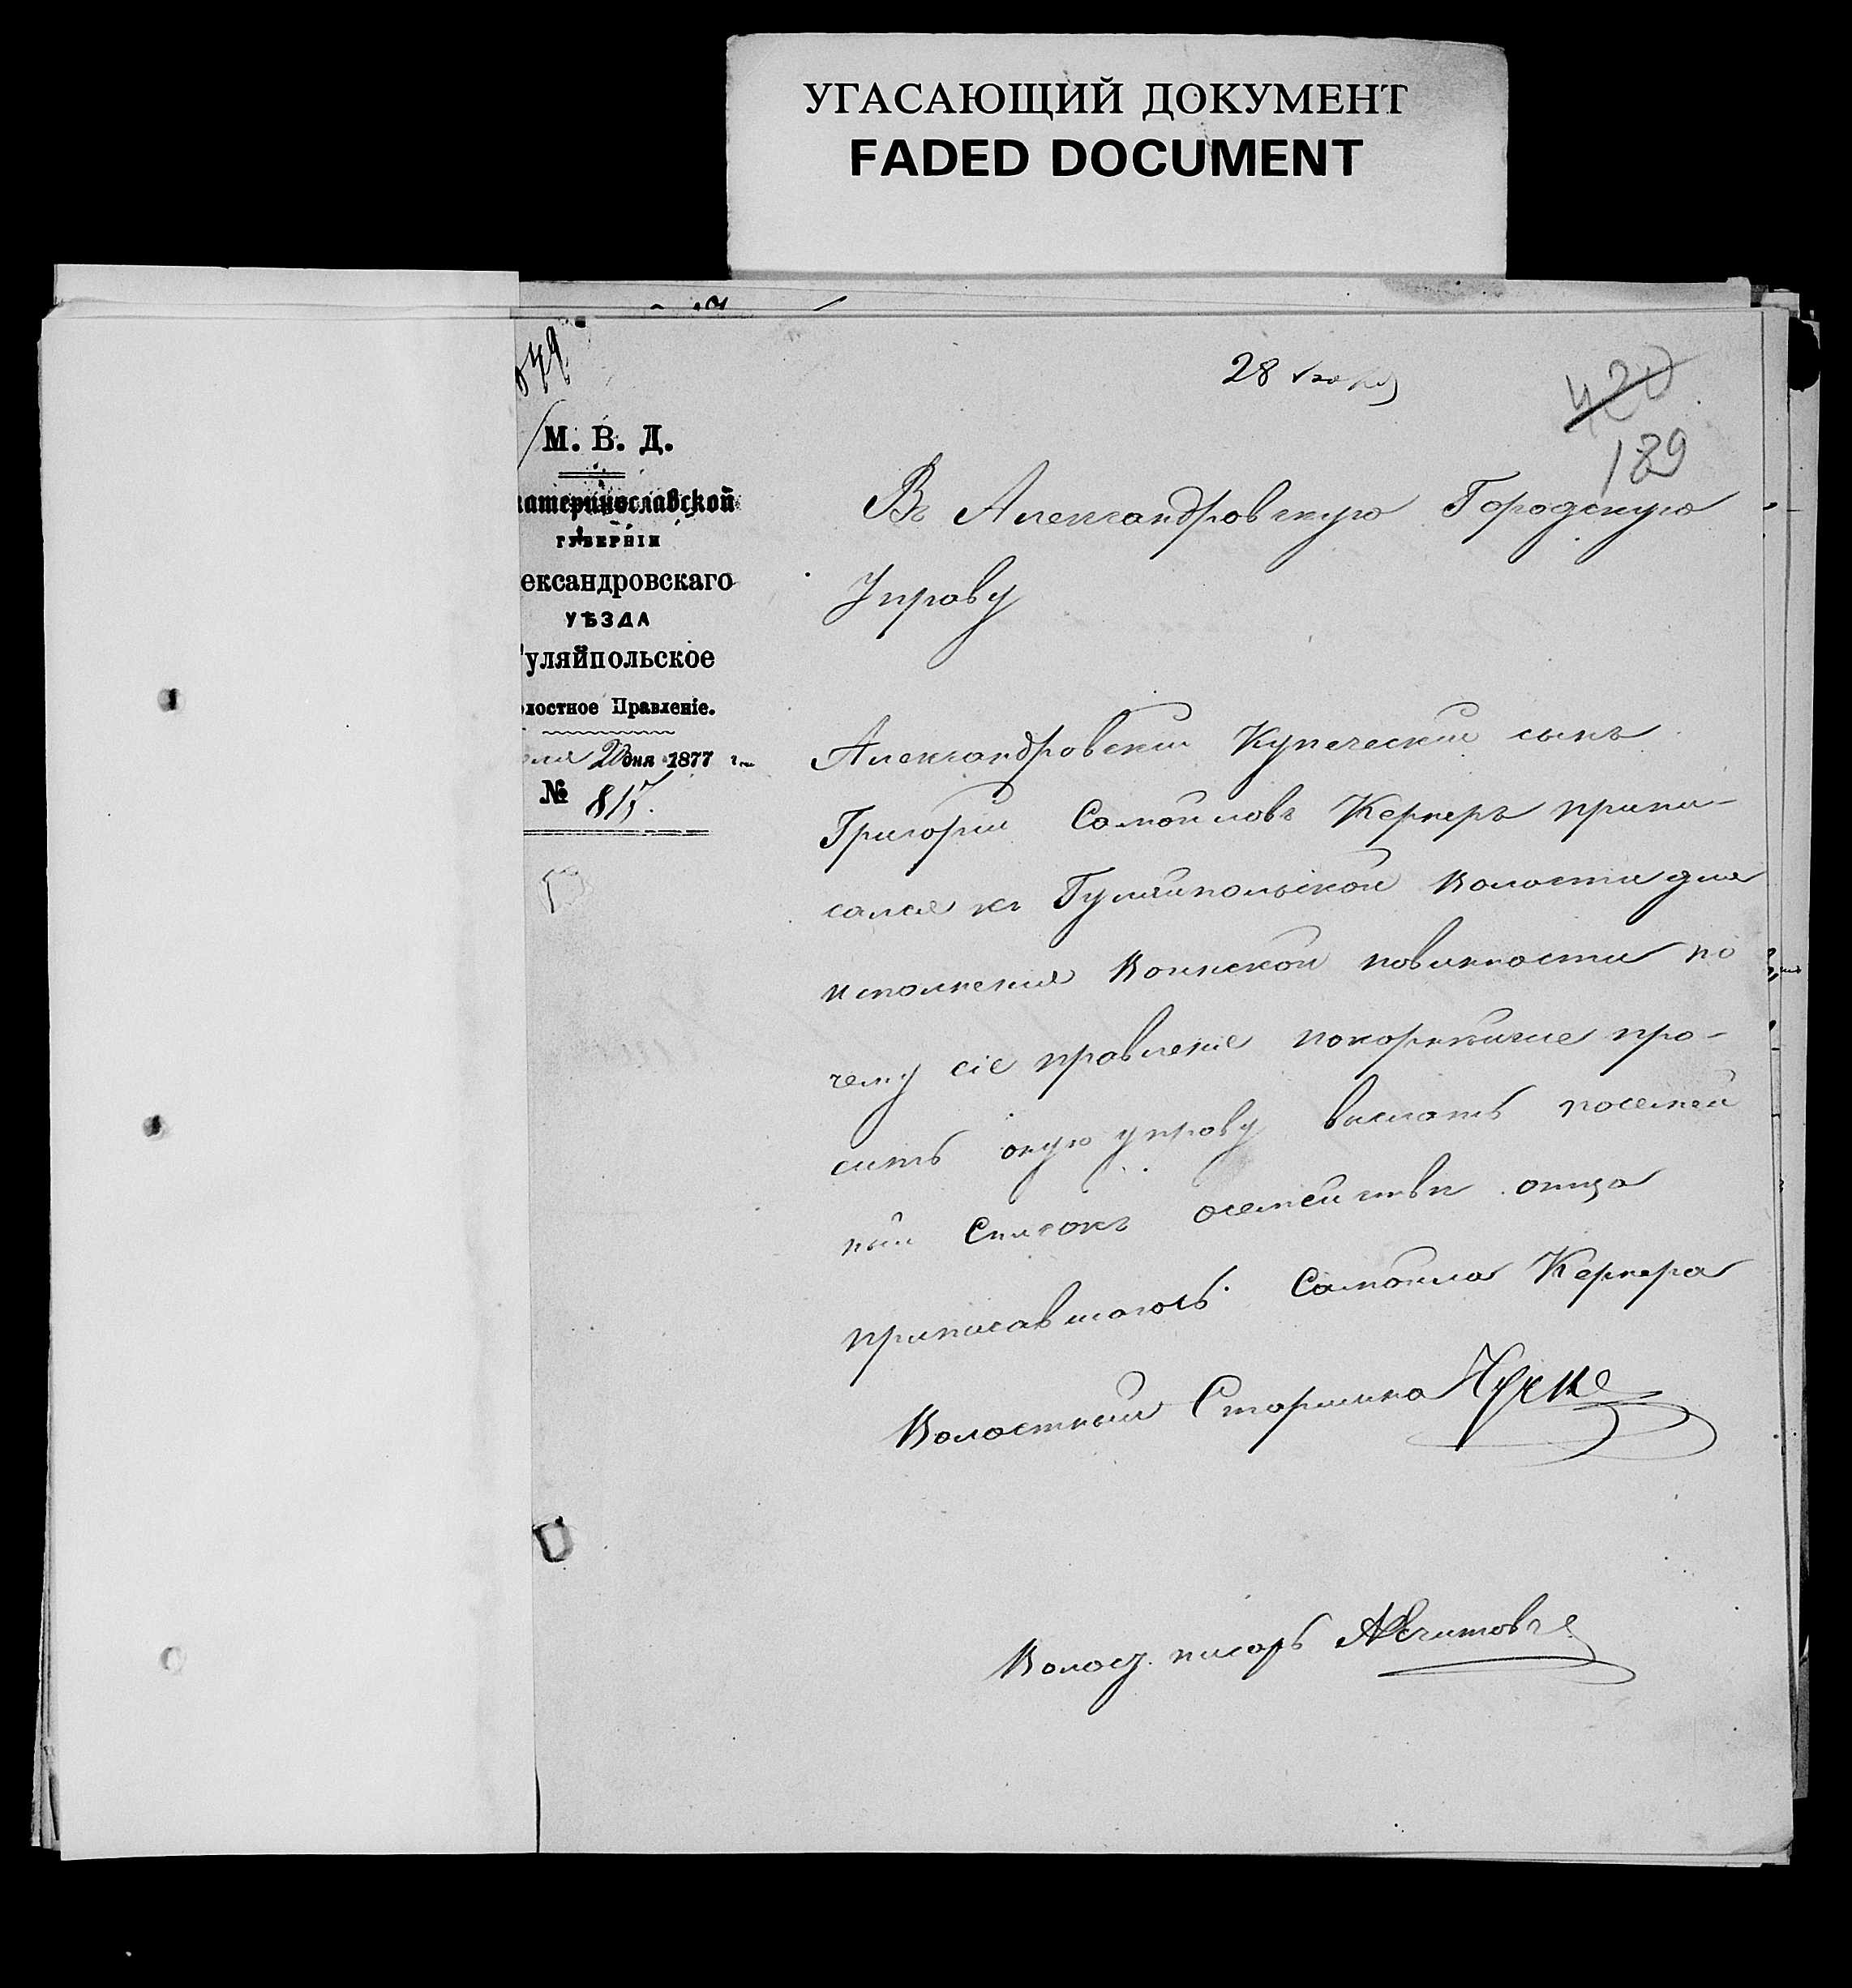 УГАСАЮЩИЙ ДОКУМЕНТ
FADED DOCUMENT
28
420
189
М. В. Д.
катеринославской
ГУБЕРНІИ
ександровскаго
УѢЗДА
Гуляйпольское
лостное Правленіе.
20 дня 1877 г.
№ 815.
Въ Александровскую Городскую
Управу
Александровскій Купеческій сынъ
Григорій Самойловъ Кернеръ припи-
сался къ Гуляйпольской Волости для
исполненія Воинской повинности по
чему сіе правленіе покорнѣйше про-
ситъ оную управу выслать посемей
ный Списокъ осемействѣ отца
приписавшагось Самойла Кернера
Волостный Старшина
Волост. писарь